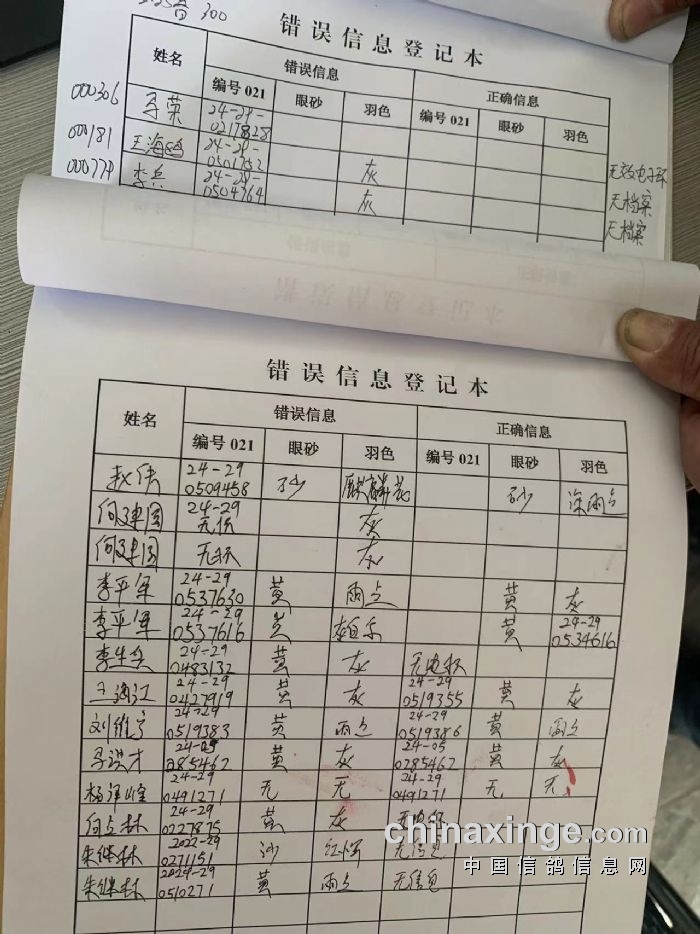 300
错误信息登记本
姓名 错误信息 正确信息
编号 021 眼砂 羽色 编号 021 眼砂 羽色
000306 马荣 24-29-0217828 无效电子环
000181 王海 24-29-0501752 灰 无档案
000774 李兵 24-29-0504764 灰 无档案
错误信息登记本
姓名 错误信息 正确信息
编号 021 眼砂 羽色 编号 021 眼砂 羽色
赵伏 24-29 0509458 砂 麒麟花 砂 深雨点
何建国 24-29 灰
何建国 无环 灰
李平军 24-29 0537630 黄 雨点 黄 灰
李平军 24-29 0537616 黄 黄 24-29 0534616
24-29 0483132 黄 灰
王海江 24-29 0427919 黄 灰 24-29 0519355 黄 灰
刘维 24-29 0519383 黄 雨点 24-29 0519386 黄 雨点
马洪才 24-05 0285467 黄 灰 24-05 0285462 黄 灰
杨泽峰 24-29 0491271 无 无 24-29 0491271 无 无
向立林 24-29 0227875 黄 灰
朱继林 2022-29 0271151 沙 无信息
朱继林 2024-29 0510271 黄 雨点 无信息
chinaxinge.com
中国信鸽信息网